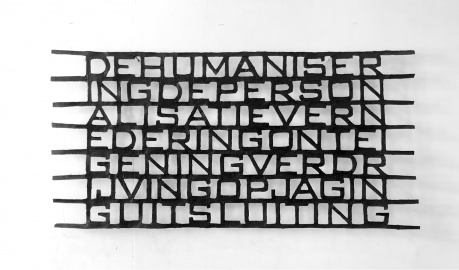 DEHUMANISER
INGDEPERSON
ALISATIEVERN
EDERINGONTEI
GENINGVERDR
IJVINGOPJAGIN
GUITSLUITING